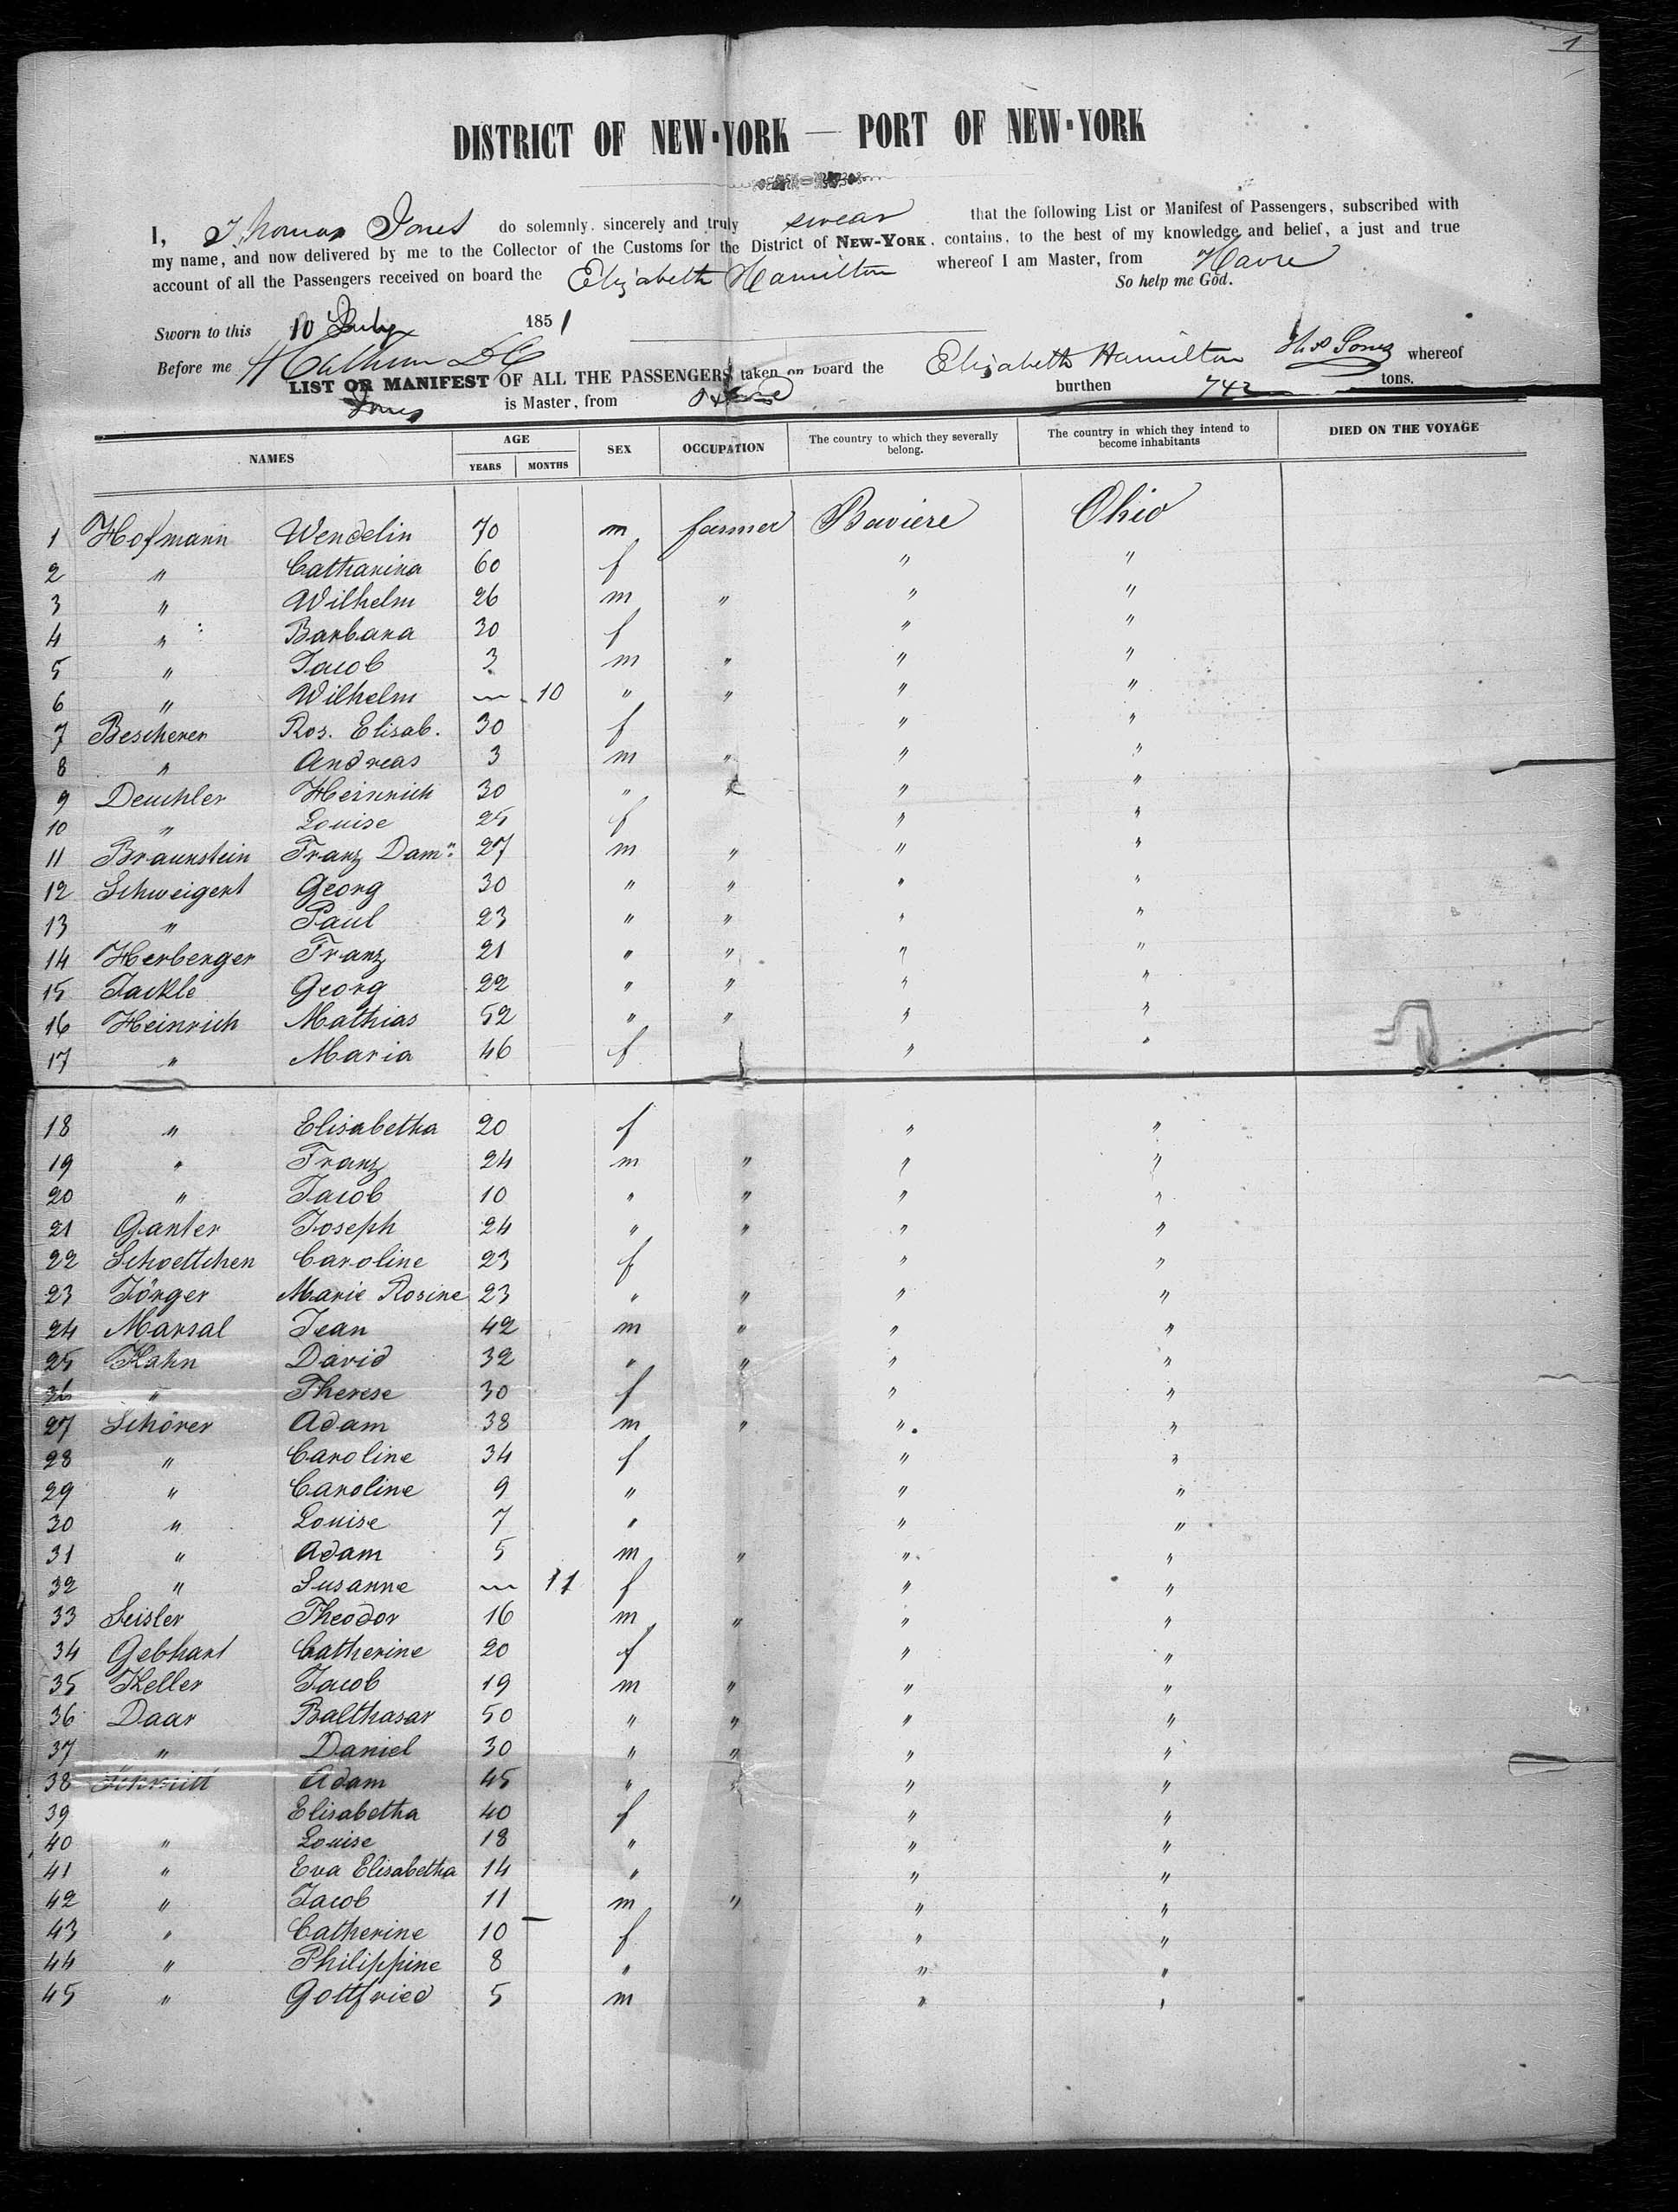 1
DISTRICT OF NEW-YORK — PORT OF NEW-YORK
I, Thomas Jones do solemnly, sincerely and truly swear that the following List or Manifest of Passengers, subscribed with
my name, and now delivered by me to the Collector of the Customs for the District of NEW-YORK, contains, to the best of my knowledge and belief, a just and true
account of all the Passengers received on board the Elizabeth Hamilton whereof I am Master, from Havre
So help me God.
Sworn to this 10 July 1851
Before me
LIST OR MANIFEST OF ALL THE PASSENGERS taken on board the Elizabeth Hamilton whereof
Jones is Master, from burthen 742 tons.
NAMES AGE YEARS MONTHS SEX OCCUPATION The country to which they severally belong. The country in which they intend to become inhabitants DIED ON THE VOYAGE
1 Hofmann Wendelin 70 m farmer Baviere Ohio
2 " Catharina 60 f " "
3 " Wilhelm 26 m " " "
4 " Barbara 30 f " "
5 " Jacob 3 m " " "
6 " Wilhelm — 10 " " " "
7 Bescherer Ros. Elisab. 30 f " "
8 " Andreas 3 m " " "
9 Deuchler Heinrich 30 " " "
10 " Louise 25 f " "
11 Braunstein Franz Dam: 27 m " " "
12 Schweigert Georg 30 " " " "
13 " Paul 23 " " " "
14 Herberger Franz 21 " " " "
15 Jackle Georg 22 " " " "
16 Heinrich Mathias 52 " " " "
17 " Maria 46 f " "
18 " Elisabetha 20 f " "
19 " Franz 24 m " " "
20 " Jacob 10 " " " "
21 Ganter Joseph 24 " " " "
22 Schoettchen Caroline 23 f " "
23 Jörger Marie Rosine 23 " " " "
24 Marsal Jean 42 m " " "
25 Kahn David 32 " " " "
26 " Therese 30 f " "
27 Schörer Adam 38 m " " "
28 " Caroline 34 f " "
29 " Caroline 9 " " "
30 " Louise 7 " " "
31 " Adam 5 m " " "
32 " Susanne — 11 f " "
33 Seisler Theodor 16 m " " "
34 Gebhart Catherine 20 f " "
35 Keller Jacob 19 m " " "
36 Daar Balthasar 50 " " " "
37 " Daniel 30 " " " "
38 Schmitt Adam 45 " " " "
39 Elisabetha 40 f " "
40 " Louise 18 " " "
41 " Eva Elisabetha 14 " " "
42 " Jacob 11 m " " "
43 " Catherine 10 f " "
44 " Philippine 8 " " "
45 " Gottfried 5 m " "